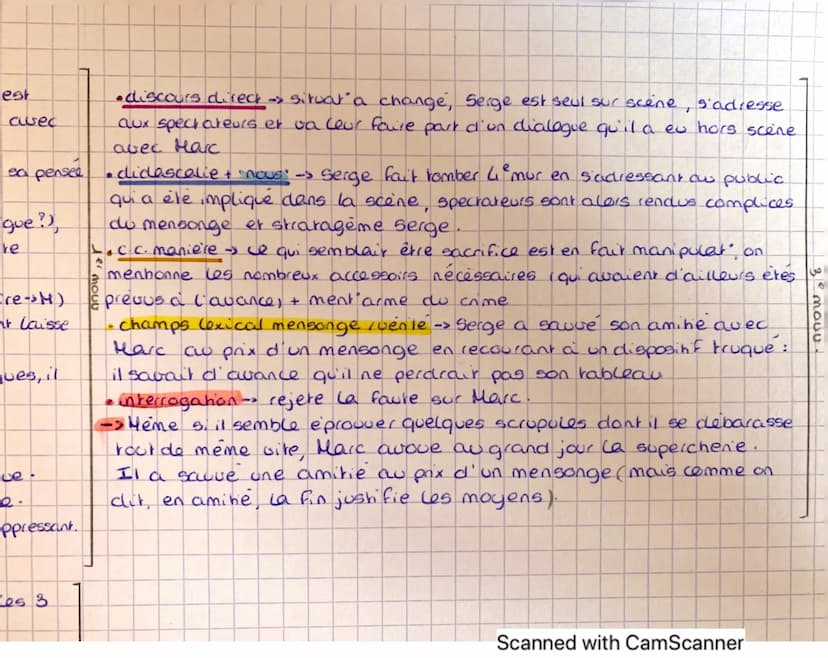 est
avec
sa pensée
que?),
re
re->M)
nt laisse
ques, il
ue.
e.
ppressant.
Ces 3
1er mouv
• discours direct -> situat° a changé, Serge est seul sur scène, s'adresse
aux spectateurs et va leur faire part d'un dialogue qu'il a eu hors scène
avec Marc
• didascalie + "nous" -> Serge fait tomber 4e mur en s'adressant au public
qui a été impliqué dans la scène, spectateurs sont alors rendus complices
du mensonge et stratagème Serge.
• c.c. manière -> ce qui semblait être sacrifice est en fait manipulat°, on
mentionne les nombreux accessoirs nécéssaires (qui avaient d'ailleurs étés
prévus à l'avance) + ment° arme du crime
• champs lexical mensonge/vérité -> Serge a sauvé son amitié avec
Marc au prix d'un mensonge en recourant à un dispositif truqué :
il savait d'avance qu'il ne perdrait pas son tableau
• interrogation -> rejete la faute sur Marc.
-> Même si il semble éprouver quelques scrupules dont il se débarasse
tout de même vite, Marc avoue au grand jour la supercherie.
Il a sauvé une amitié au prix d'un mensonge (mais comme on
dit, en amitié, la fin justifie les moyens).
3e mouv.
Scanned with CamScanner